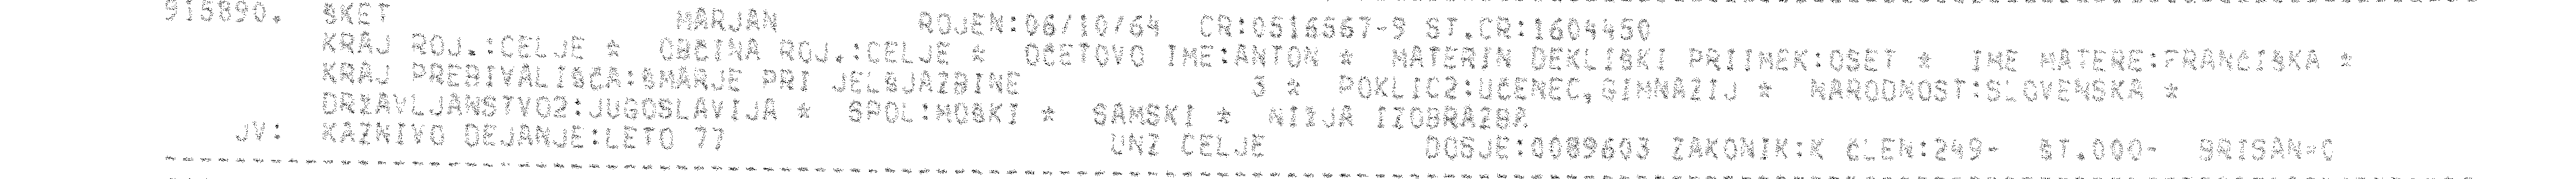 915890. ŠKET MARJAN ROJEN:06/10/64 CR:0516567-9 ST.CR:1604450
KRAJ ROJ.:CELJE * OBČINA ROJ.:CELJE * OČETOVO IME:ANTON * MATERIN DEKLIŠKI PRIIMEK:OSET * IME MATERE:FRANČIŠKA *
KRAJ PREBIVALIŠČA:ŠMARJE PRI JELŠJAŽBINE 3 * POKLIC2:UČENEC,GIMNAZIJ * NARODNOST:SLOVENSKA *
DRŽAVLJANSTVO2:JUGOSLAVIJA * SPOL:MOŠKI * SAMSKI * NIŽJA IZOBRAZBA
JV: KAZNIVO DEJANJE:LETO 77 UNZ CELJE DOSJE:0089603 ZAKONIK:K ČLEN:249- ŠT.000- BRISAN=0